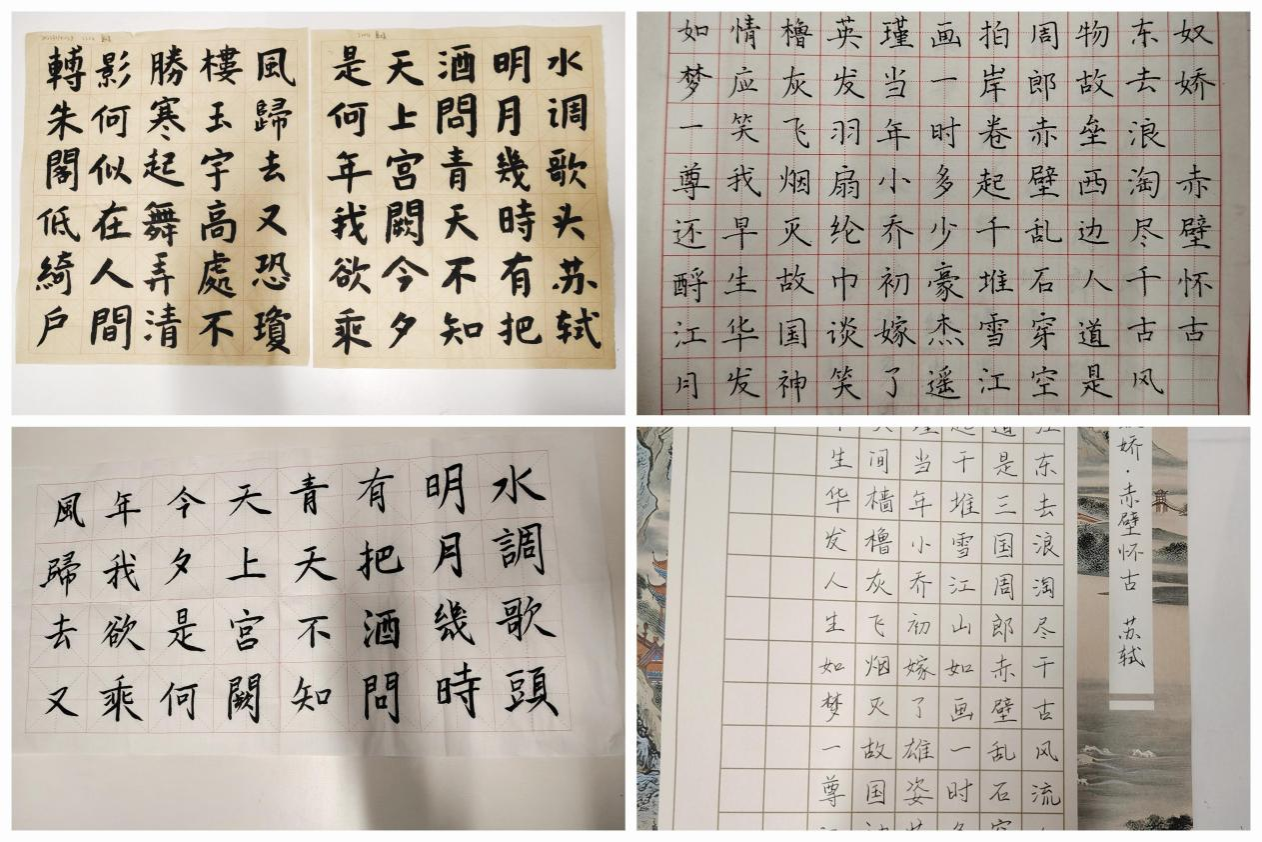 水调歌头苏轼
明月幾時有把
酒問青天不知
天上宫闕今夕
是何年我欲乘
風歸去又恐瓊
樓玉宇高處不
勝寒起舞弄清
影何似在人間
轉朱閣低綺户
奴娇 赤壁怀古
东去浪淘尽千古风
物故垒西边人道是
周郎赤壁乱石穿空
拍岸卷起千堆雪江
画一时多少豪杰遥
瑾当年小乔初嫁了
英发羽扇纶巾谈笑
橹灰飞烟灭故国神
情应笑我早生华发
如梦一尊还酹江月
水調歌頭
明月幾時
有把酒問
青天不知
天上宫闕
今夕是何
年我欲乘
風歸去又
娇·赤壁怀古 苏轼
东去浪淘尽千古风流
是三国周郎赤壁乱石
千堆雪江山如画一时
当年小乔初嫁了雄姿
间樯橹灰飞烟灭故国
生华发人生如梦一尊